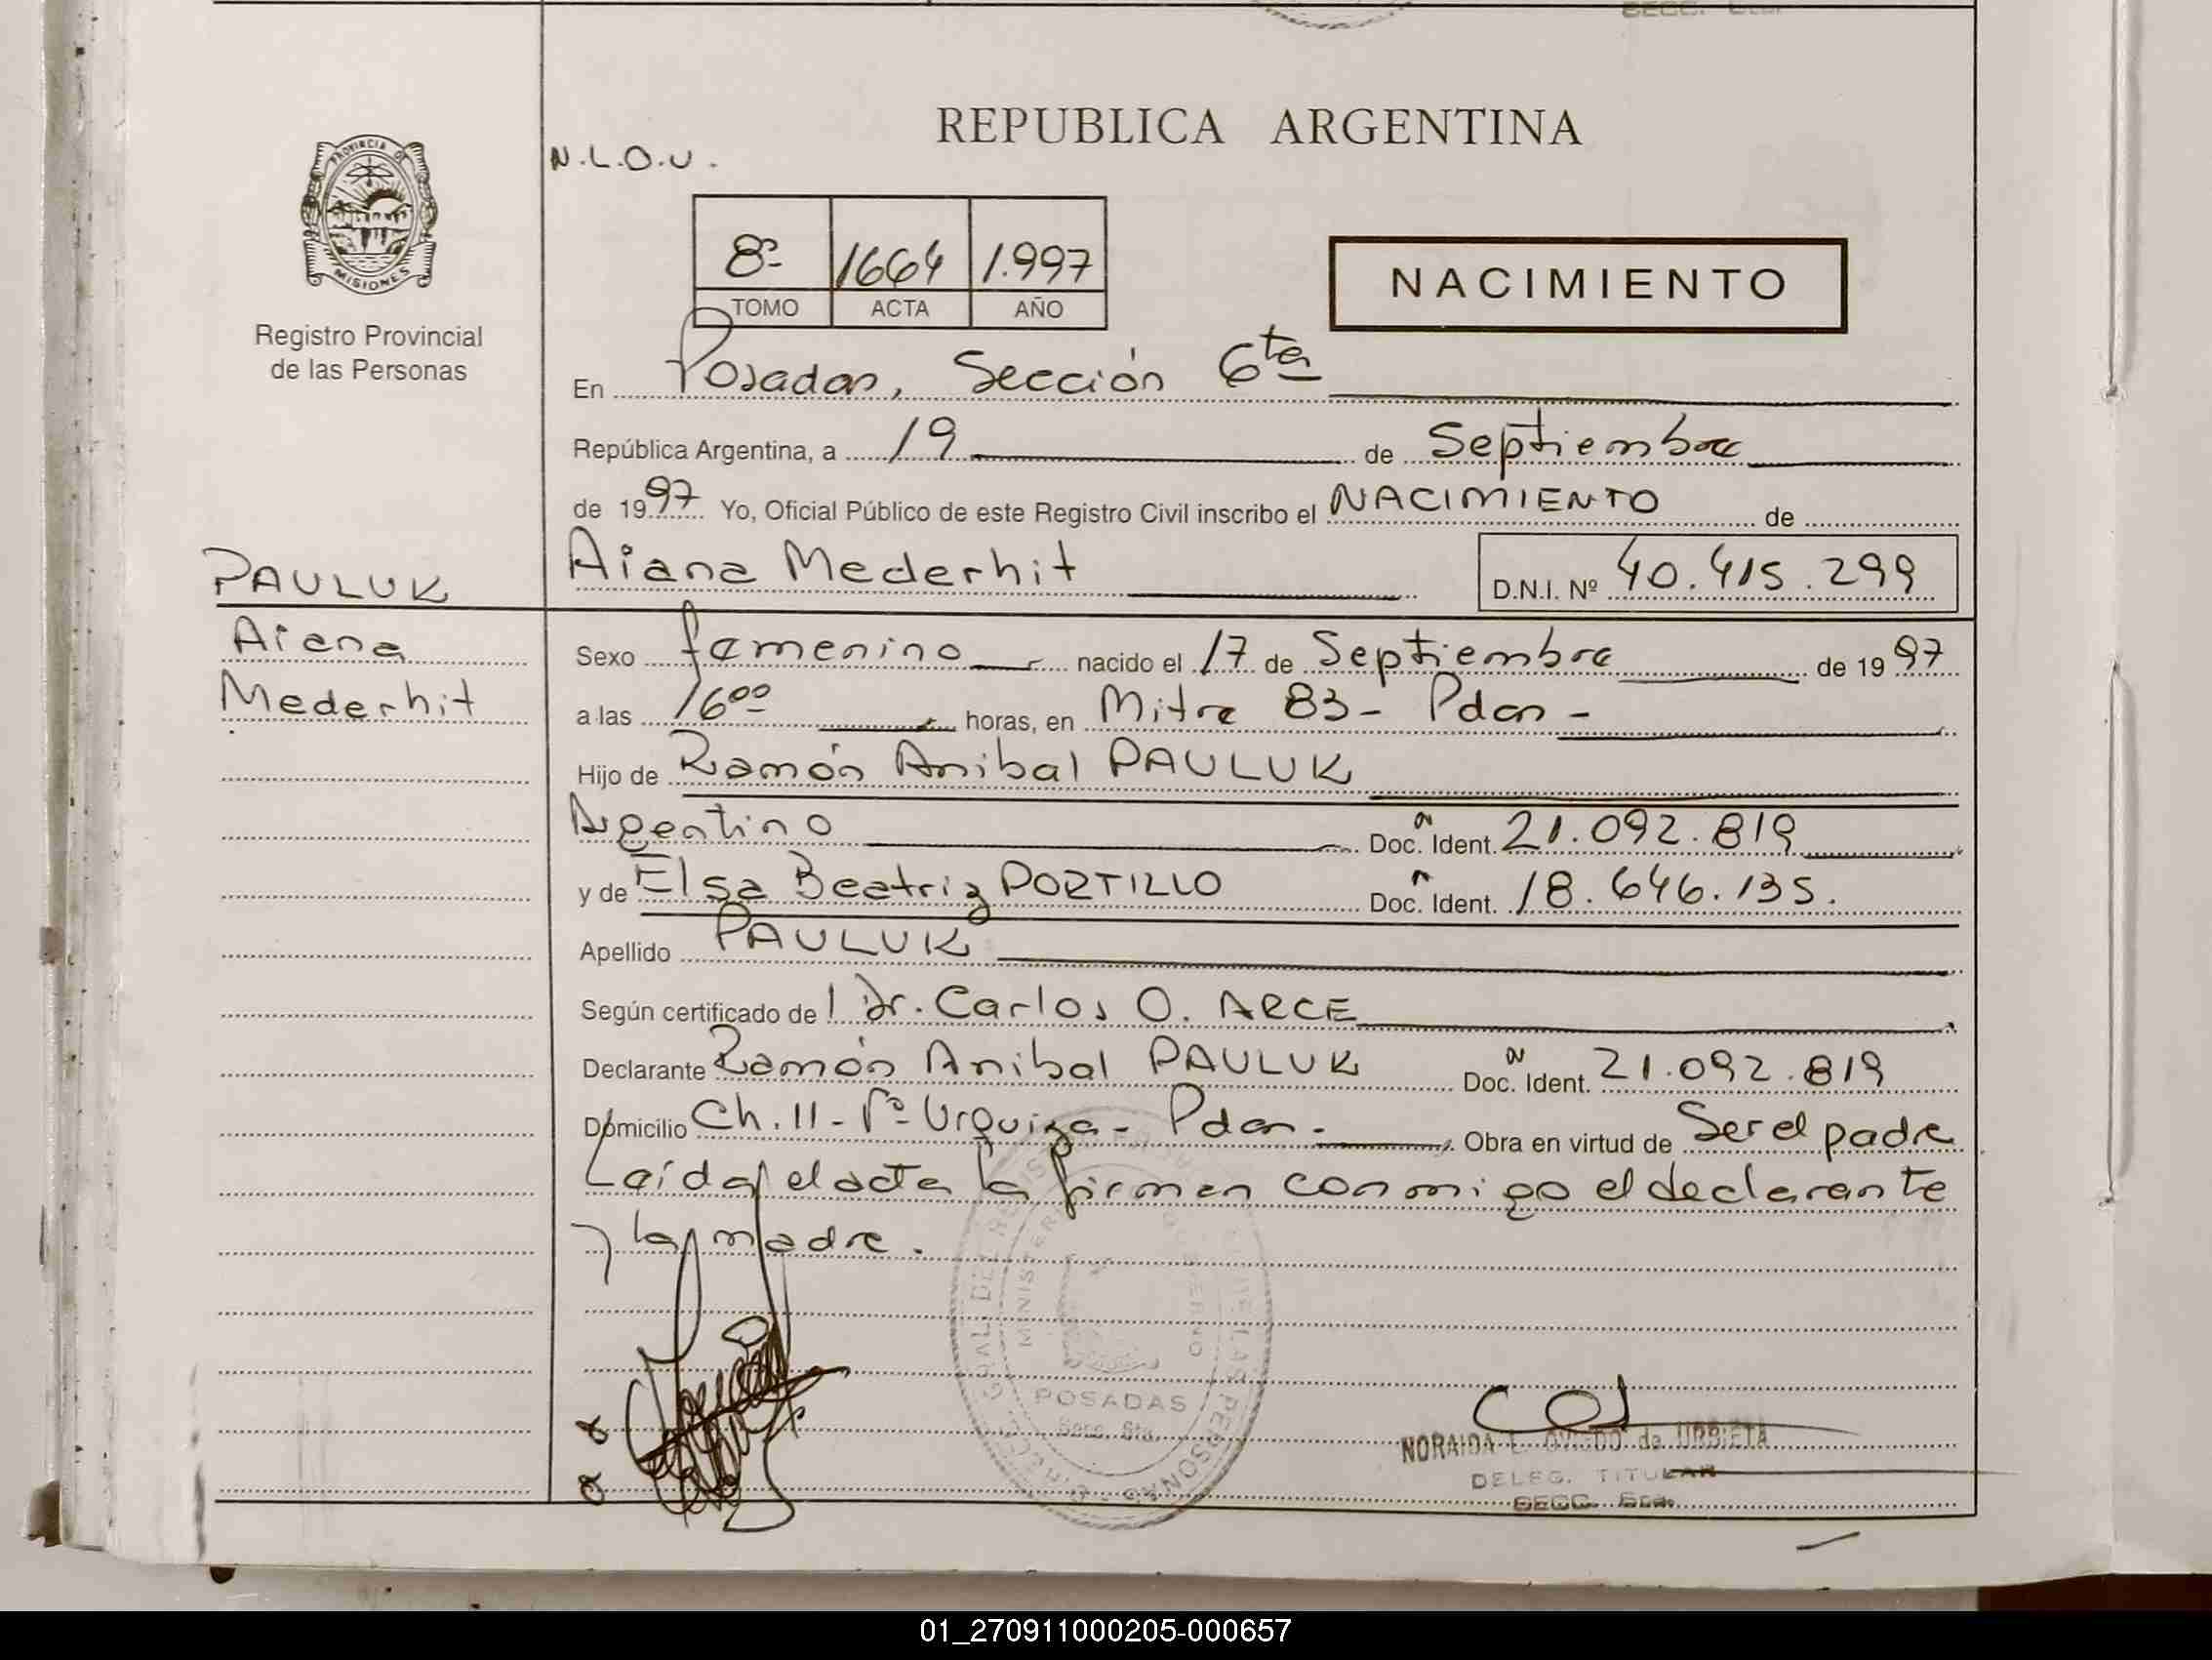 SECC.
REPUBLICA ARGENTINA
N.L.O.U.
PROVINCIA DE
MISIONES
Registro Provincial
de las Personas
8º 1664 1.997
TOMO ACTA AÑO
NACIMIENTO
En Posadas, Sección 6ta
República Argentina, a 19 de Septiembre
de 1997 Yo, Oficial Público de este Registro Civil inscribo el NACIMIENTO de
PAULUK
Aiana
Mederhit
Aiana Mederhit D.N.I. Nº 40.415.299
Sexo femenino nacido el 17 de Septiembre de 1997
a las 1600 horas, en Mitre 83- Pdas -
Hijo de Ramón Anibal PAULUK
Argentino Doc. Ident. 21.092.819
y de Elsa Beatriz PORTILLO Doc. Ident. 18.646.135.
Apellido PAULUK
Según certificado del Dr. Carlos O. ARCE
Declarante Ramón Anibal PAULUK Doc. Ident. 21.092.819
Domicilio Ch. 11 - Vº Urquiza - Pdas - Obra en virtud de Ser el padre
Leída el acta la firman conmigo el declarante
y la madre.
MINISTERIO GOBIERNO
POSADAS
Secc. 6ta.
NORAIDA L. OVIEDO de URBIETA
DELEG. TITULAR
SECC. 6ta.
01_270911000205-000657